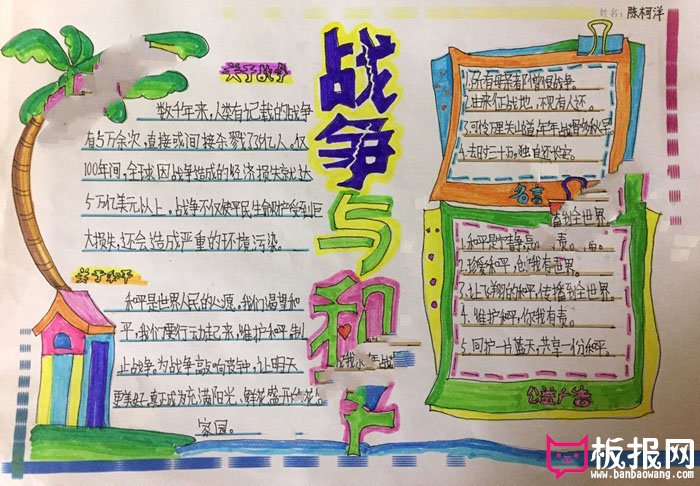 姓名：陈柯洋
战争与和平
关于战争
数千年来，人类有记载的战争
有5万余次，直接或间接杀戮了36亿人。仅
100年间，全球因战争造成的经济损失就达
5万亿美元以上。战争不仅使平民生命财产受到巨
大损失，还会造成严重的环境污染。
关于和平
和平是世界人民的心愿。我们渴望和
平，我们要行动起来，维护和平，制
止战争，为战争敲响丧钟，让明天
更美好，真正成为充满阳光、鲜花盛开的
家园。
1.所有母亲都憎恨战争。
2.由来征战地，不见有人还。
3.可怜万里关山道，年年战骨多秋草。
4.去时三十万，独自还长安。
名言
播到全世界
1.和平是
2.珍爱和平，创我有世界。
3.让飞翔的和平，传播到全世界。
4.维护和平，你我有责。
5.同护一片蓝天，共享一份和平。
公益广告
板报网
www.banbaowang.com